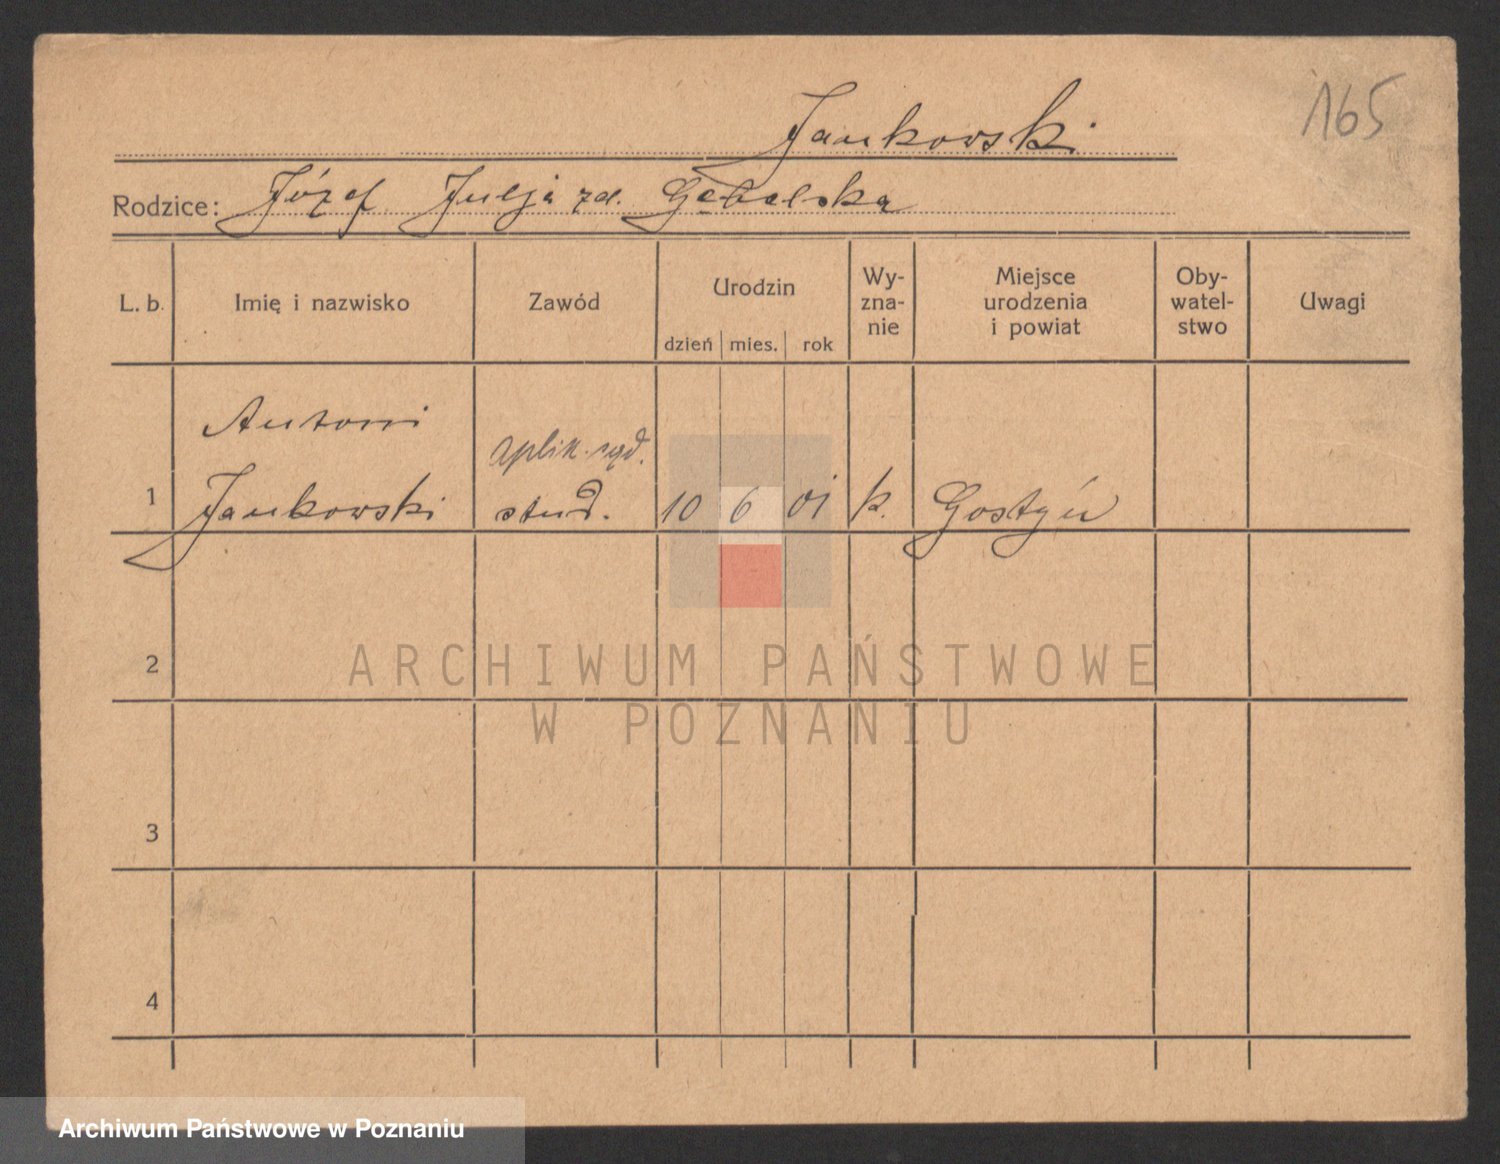 165
Jankowski
Rodzice: Józef Julja zd.
L. b.
Imię i nazwisko
Zawód
Urodzin
dzień mies. rok
Wy-
zna-
nie
Miejsce
urodzenia
i powiat
Oby-
watel-
stwo
Uwagi
Antoni
aplik. sąd.
1 Jankowski stud. 10 6 01 k. Gostyń
2
ARCHIWUM PAŃSTWOWE
W POZNANIU
3
4
Archiwum Państwowe w Poznaniu